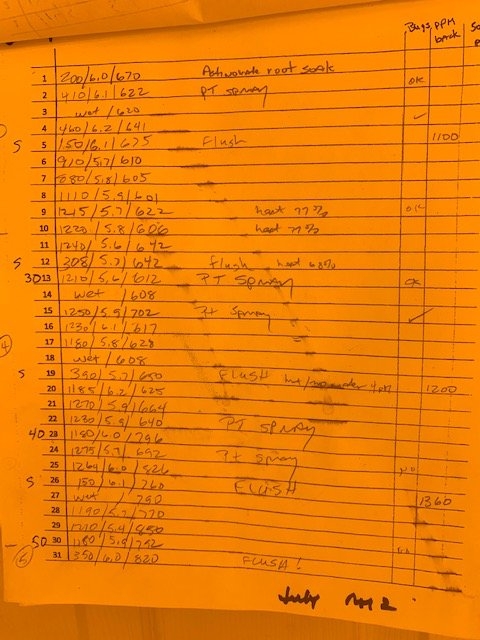 Bugs PPM back
1 200/6.0/670 root soak OK
2 410/6.1/622 PT spray
3 wet /620 ✓
4 460/6.2/641
S 5 150/6.1/675 Flush 1100
6 910/5.7/610
7 880/5.8/605
8 1110/5.9/601
9 1245/5.7/622 heat 77% OK
10 1220/5.8/606 heat 77%
11 1240/5.6/642
S 12 308/5.7/642 flush heat 68%
30 13 1210/5.6/612 PT Spray OK
14 wet /608
15 1250/5.9/702 Pt Spray ✓
16 1230/6.1/617
4 17 1180/5.8/628
18 wet /608
S 19 390/5.7/650 FLUSH
20 1185/6.2/625 1200
21 1270/5.9/664
22 1230/5.9/640 PT SPRAY
40 23 1180/6.0/796
24 1275/5.9/692 Pt Spray
25 1264/6.0/826 NO
S 26 150/6.1/760 FLUSH
27 wet /790 1360
28 1190/5.7/770
29 1210/5.4/850
50 30 1180/5.9/792
5 31 350/6.0/820 FLUSH!
July rm 2